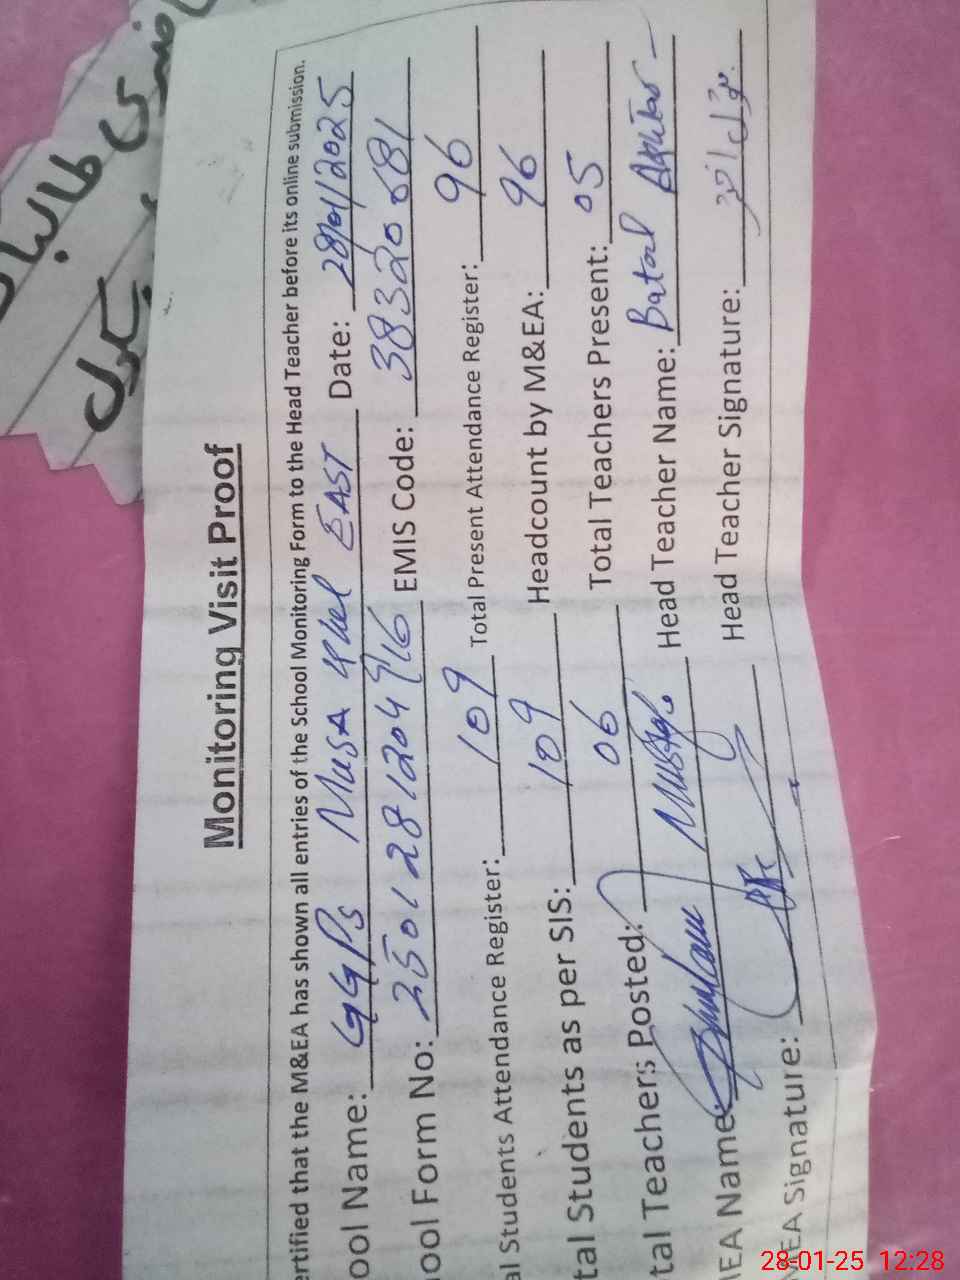 ضری طالبا
سکول
Monitoring Visit Proof
ertified that the M&EA has shown all entries of the School Monitoring Form to the Head Teacher before its online submission.
ool Name: GGPS Musa Khel EAST Date: 28/01/2025
ool Form No: EMIS Code: 38320681
al Students Attendance Register: 109 Total Present Attendance Register: 96
tal Students as per SIS: 109 Headcount by M&EA: 96
tal Teachers Posted: 06 Total Teachers Present: 05
EA Name: Head Teacher Name: Batol Akhtar
MEA Signature: Head Teacher Signature:
28-01-25 12:28